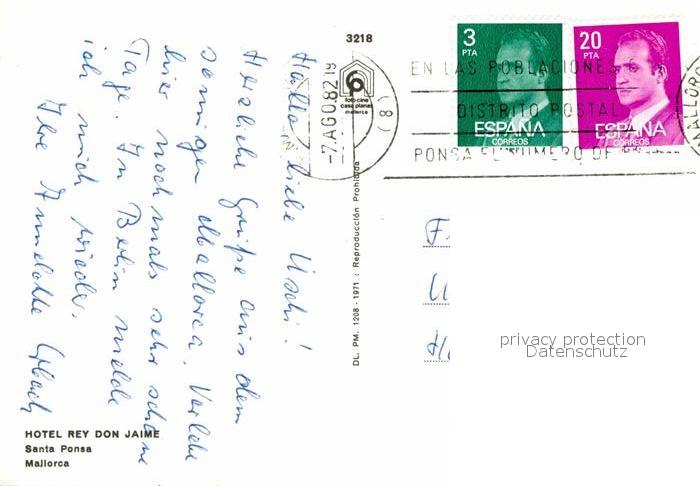 3218
3
PTA
20
PTA
ESPAÑA
CORREOS
ESPAÑA
CORREOS
-7.AGO.82 19
(8)
EN LAS POBLACIONES
DISTRITO POSTAL
PONGA EL NUMERO DE
foto cine
casa planas
mallorca
DL. PM. 1208-1971 : Reproducción Prohibida
Hallo liebe Uschi!
Herzliche Grüße aus dem
sonnigen Mallorca. Verlebe
hier nochmals sehr schöne
Tage. In Berlin melde
ich mich wieder.
Ihre Annelotte
F
U
privacy protection
Datenschutz
HOTEL REY DON JAIME
Santa Ponsa
Mallorca